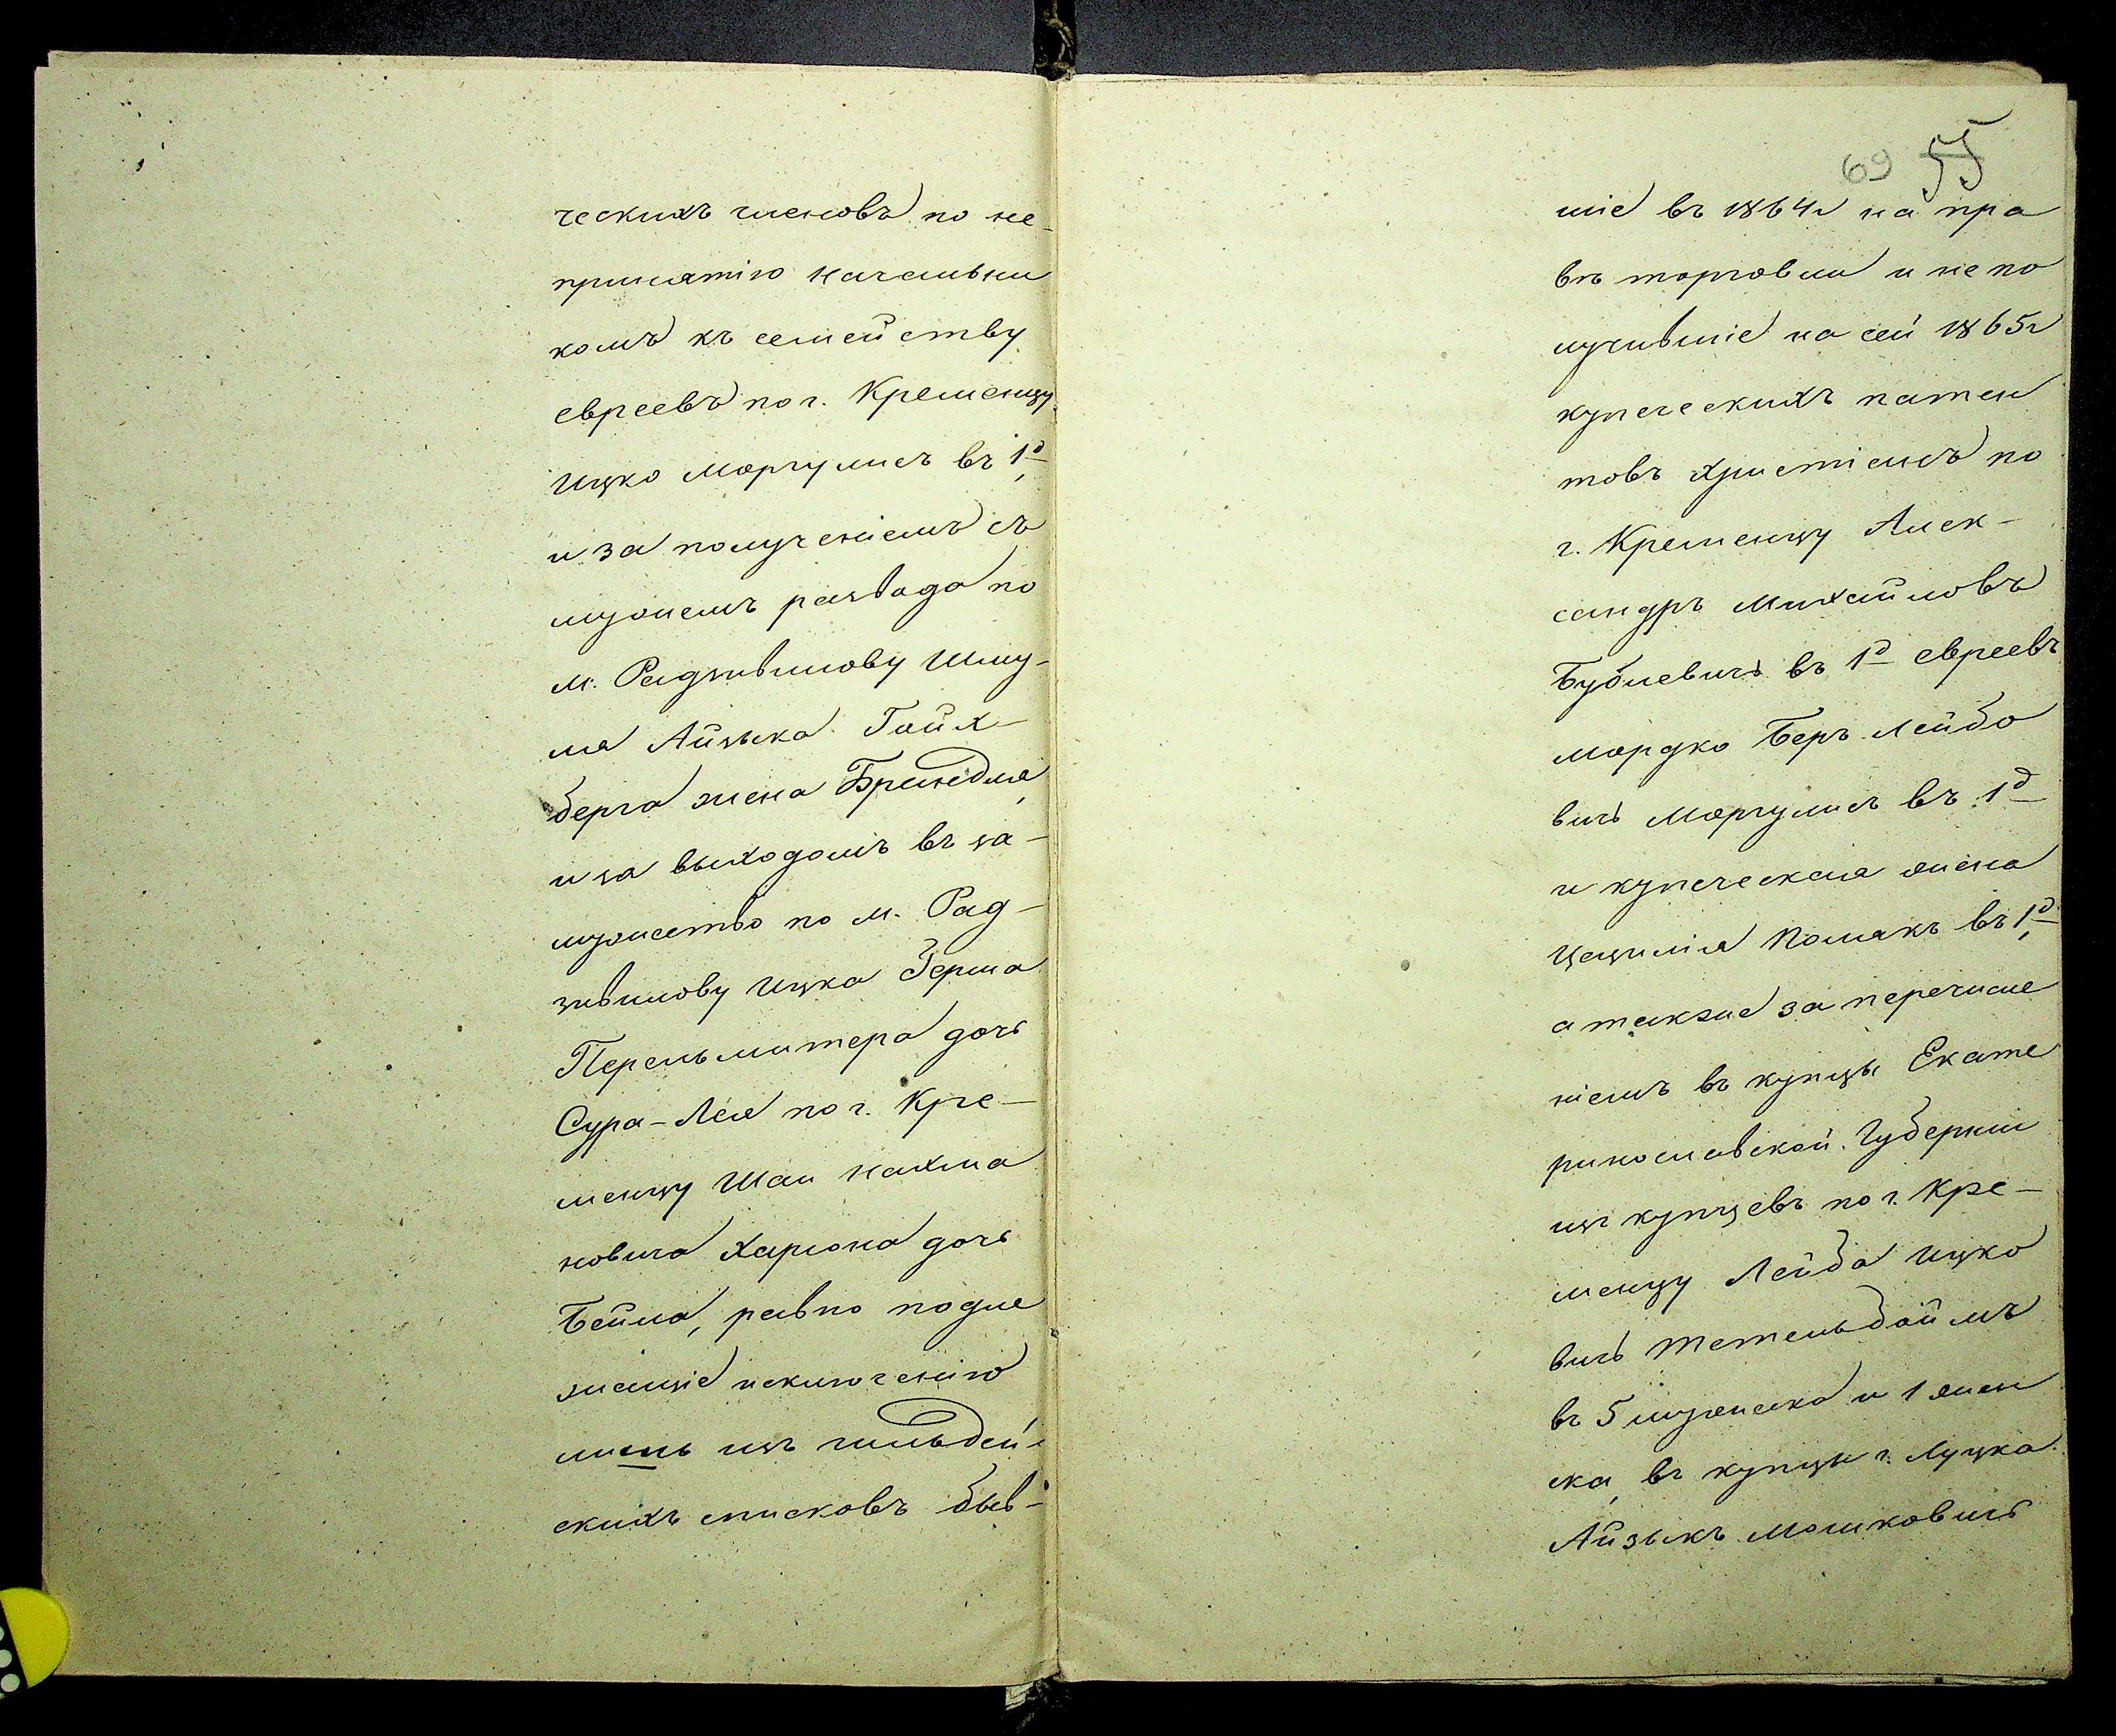 ческихъ членовъ по не-
принятію начальни
комъ къ семейству
евреевъ по г. Кременцу
Ицко Моргулисъ въ 1д
и за полученіемъ съ
мужемъ развода по
м. Радзивилову Шму-
ля Айзыка Гойх-
берга жена Бранедля
и за выходомъ въ за-
мужество по м. Рад-
зивилову Ицка Герша
Перельмитера дочь
Сура-Лея по г. Кре-
менцу Шаи Нахма
новича Харгона дочь
Бейла, равно подле
жащіе исключенію
лишь изъ гильдей-
скихъ списковъ быв-
69 55
шіе въ 1864г на пра
вѣ торговли и не по
лучившіе на сей 1865г
купеческихъ патен
товъ христіанъ по
г. Кременцу Алек-
сандръ Михайловъ
Бублевичъ въ 1д евреевъ
Мордко Беръ Лейбо
вичъ Моргулисъ въ 1д
и купеческая жена
Цецилія Полякъ въ 1д
а также за перечисле
ніемъ въ купцы Екате
ринославской Губерніи
изъ купцевъ по г. Кре-
менцу Лейба Ицко
вичъ Тетельбаймъ
въ 5 мужеска и 1 жен
ска, въ купцы г. Луцка
Айзыкъ Мошковичъ